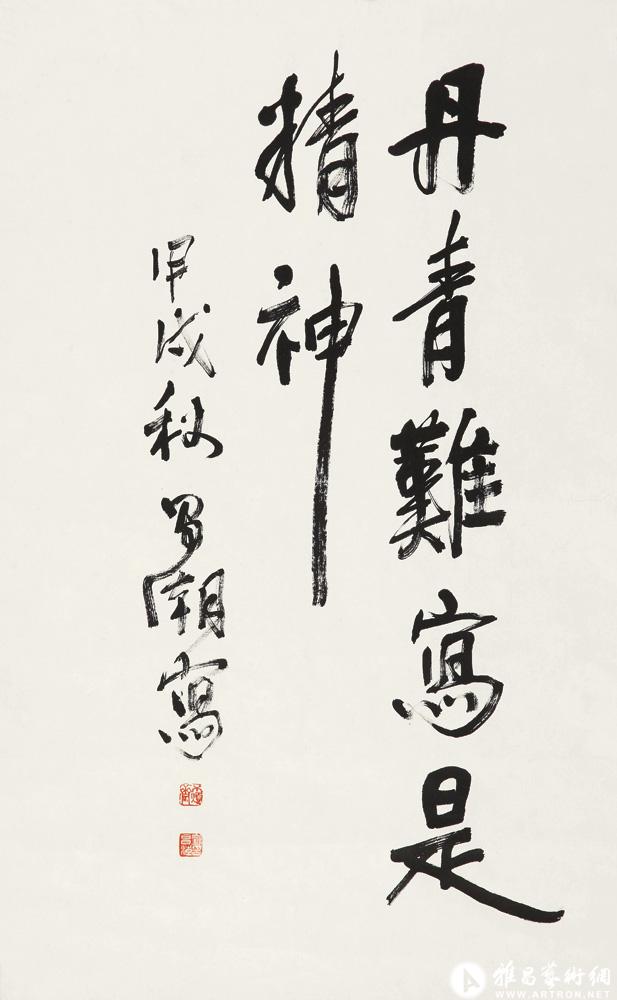 丹青難寫是
精神
甲戌秋 曼翔寫
雅昌藝術網
WWW.ARTRON.NET